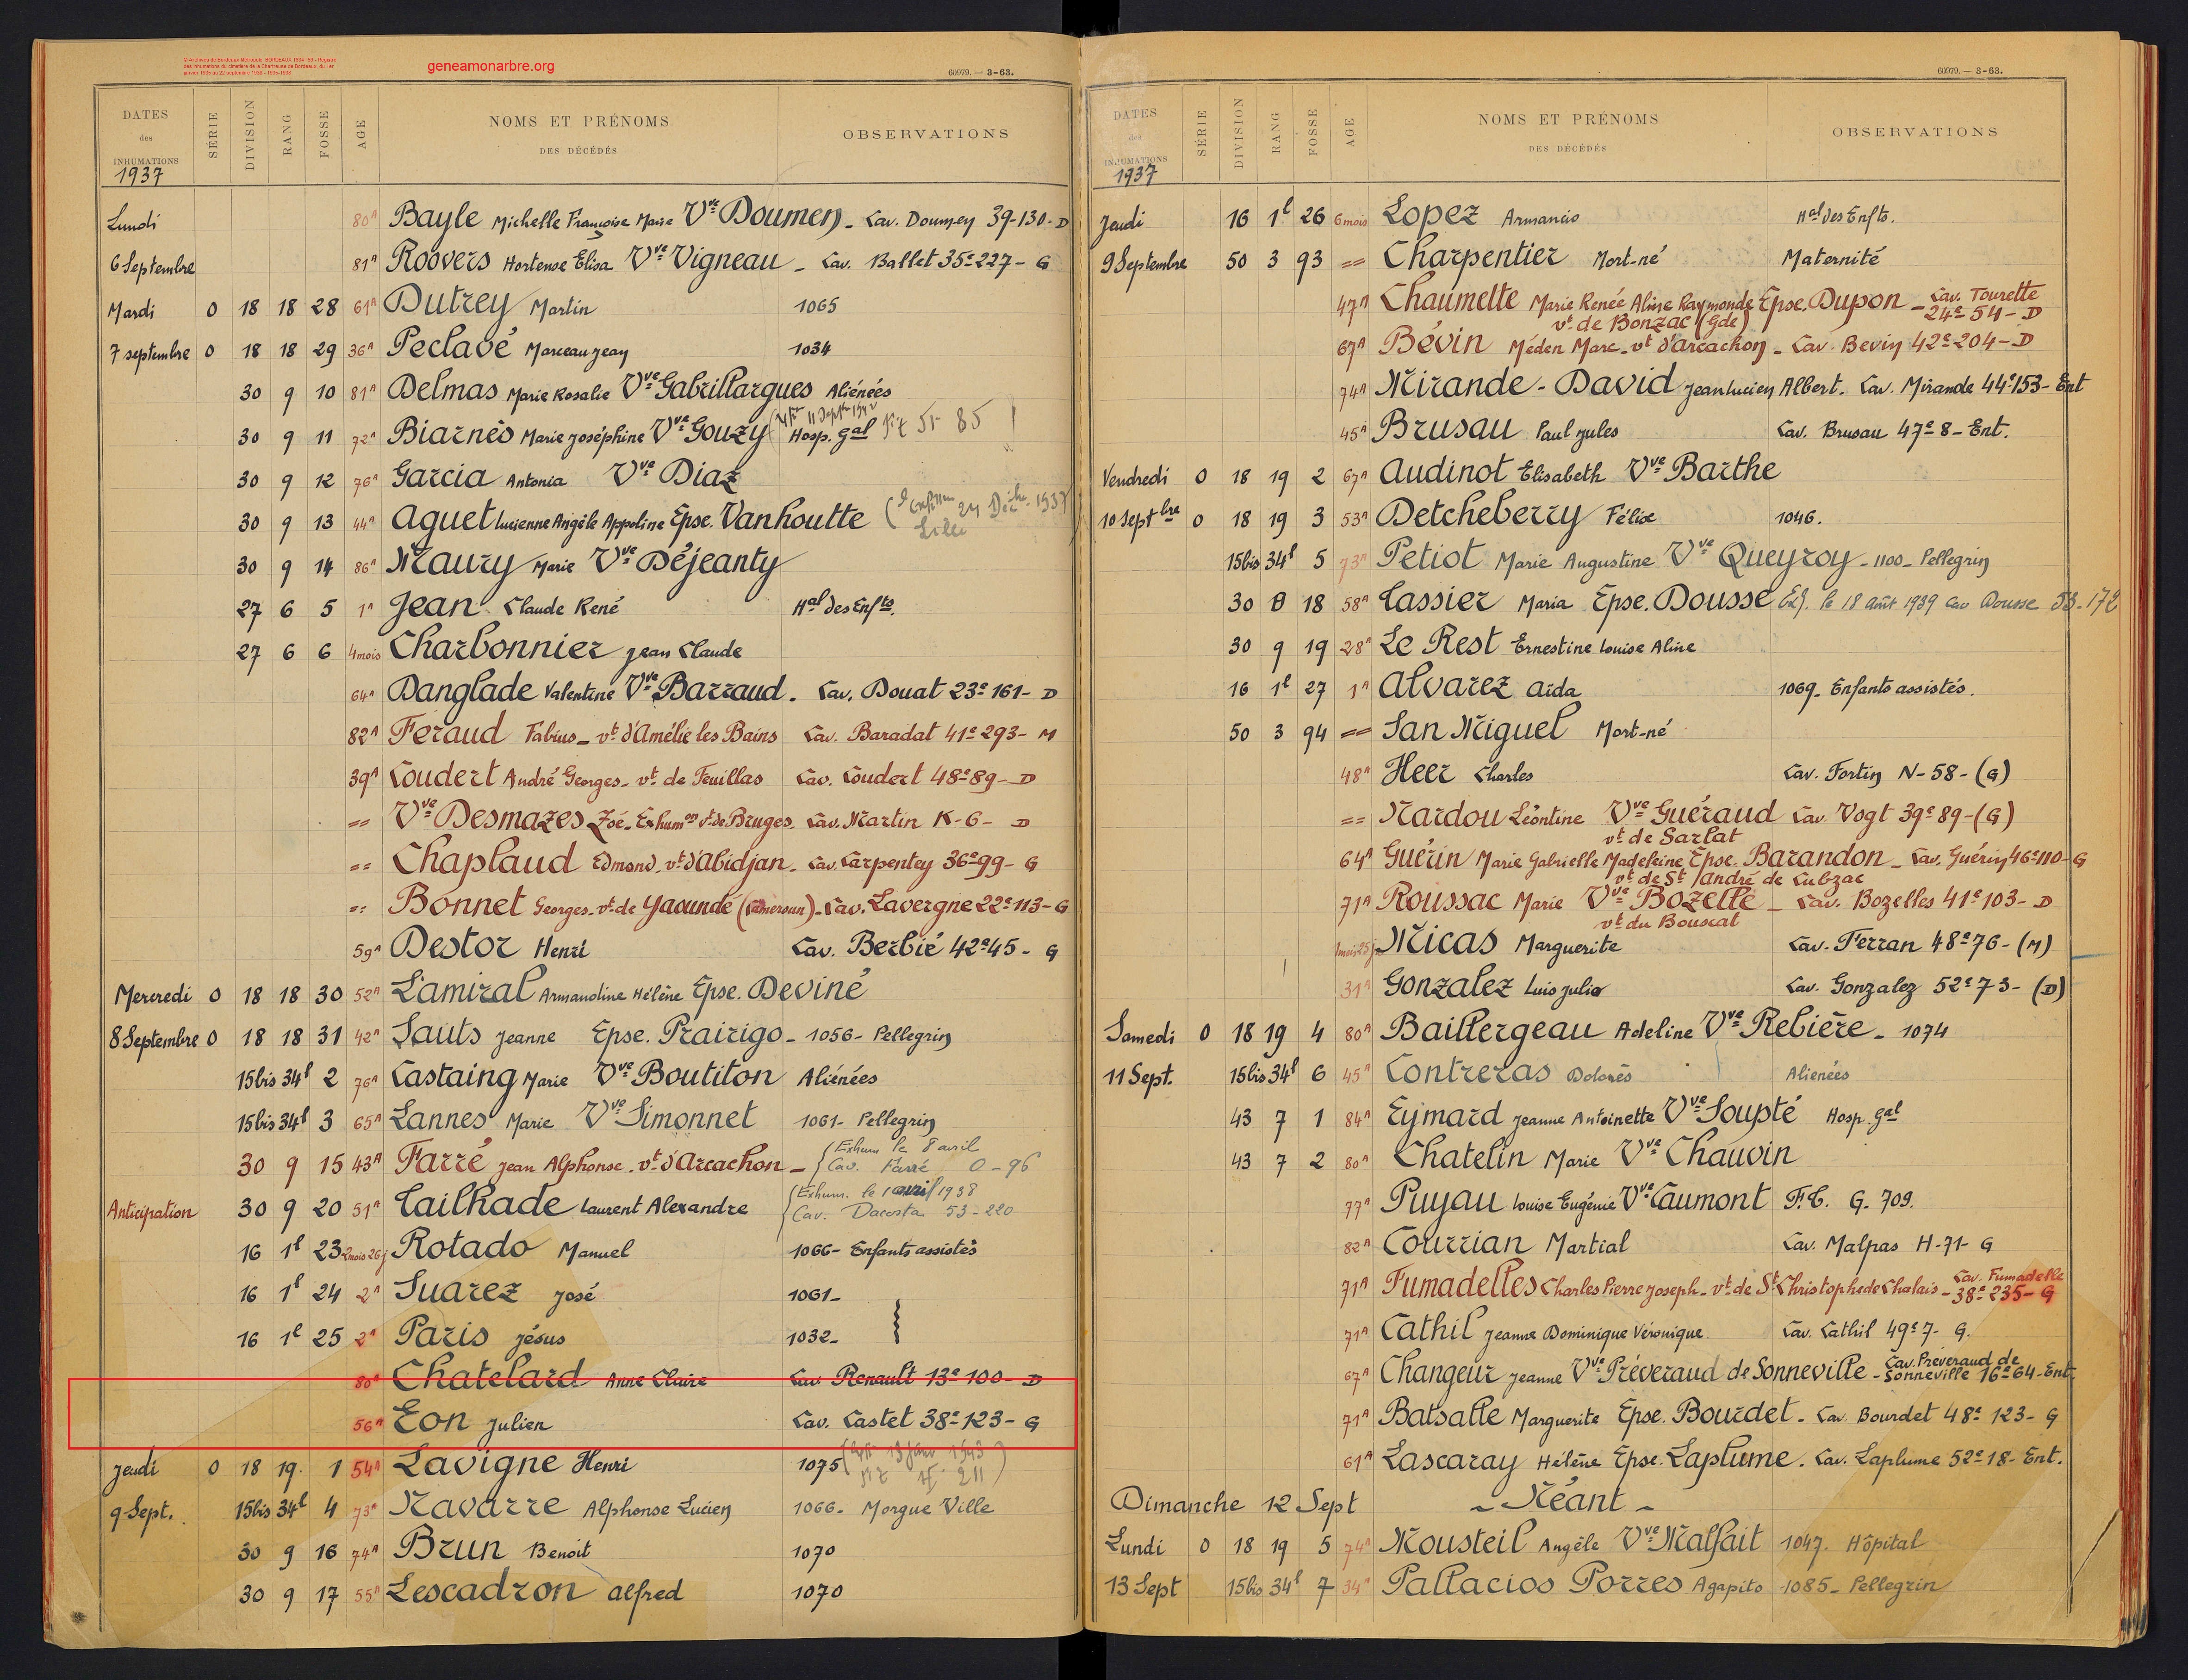 © Archives de Bordeaux Métropole, BORDEAUX 1634 I 59 - Registre
des inhumations du cimetière de la Chartreuse de Bordeaux, du 1er
janvier 1935 au 22 septembre 1938 - 1935-1938
geneamonarbre.org
60979. — 3-63.
DATES des INHUMATIONS SÉRIE DIVISION RANG FOSSE AGE NOMS ET PRÉNOMS DES DÉCÉDÉS OBSERVATIONS
1937
Lundi 80A Bayle Michelle Françoise Marie Vve Doumen - Cav. Doumen 39-130-D
6 Septembre 81A Roovers Hortense Elisa Vve Vigneau - Cav. Ballet 35e 227-G
Mardi 0 18 18 28 61A Dutrey Martin 1065
7 septembre 0 18 18 29 36A Peclavé Marceau Jean 1034
30 9 10 81A Delmas Marie Rosalie Vve Gabrillargues Aliénées
30 9 11 72A Biarnès Marie Joséphine Vve Gouzy Hosp. Gal
30 9 12 76A Garcia Antonia Vve Diaz
30 9 13 44A Aguet Lucienne Angèle Appoline Epse. Vanhoutte
30 9 14 86A Maury Marie Vve Déjeanty
27 6 5 1A Jean Claude René Hal des Enfts.
27 6 6 4 mois Charbonnier Jean Claude
64A Danglade Valentine Vve Barraud. Cav. Douat 23e 161-D
82A Feraud Fabius - vt d'Amélie les Bains Cav. Baradat 41e 293-M
39A Coudert André Georges - vt de Feuillas Cav. Coudert 48e 89-D
== Vve Desmazes Zoé - Exhumon vt de Bruges. Cav. Martin K-6-D
== Chaplaud Edmond. vt d'Abidjan. Cav. Carpentey 36e 99-G
== Bonnet Georges - vt de Yaoundé (Cameroun) - Cav. Lavergne 22e 113-G
59A Destor Henri Cav. Berbié 42e 45-G
Mercredi 0 18 18 30 52A Lamiral Armandine Hélène Epse. Deviné
8 Septembre 0 18 18 31 42A Sauts Jeanne Epse. Prairigo - 1056 - Pellegrin
15bis 34l 2 76A Castaing Marie Vve Boutiton Aliénées
15bis 34l 3 65A Lannes Marie Vve Simonnet 1061- Pellegrin
30 9 15 43A Farré Jean Alphonse - vt d'Arcachon - Exhum le 8 avril
Cav. Farré 0-96
Anticipation 30 9 20 51A Tailhade Laurent Alexandre Exhum. le 1 avril 1938
Cav. Dacosta 53-220
16 1l 23 2 mois 26 j Rotado Manuel 1066- Enfants assistés
16 1l 24 2A Suarez José 1061-
16 1l 25 2A Paris Jésus 1032-
80A Chatelard Anne Claire Cav. Renault 13e 100-D
56A Eon Julien Cav. Castet 38e 123-G
Jeudi 0 18 19 1 54A Lavigne Henri 1075
9 Sept. 15bis 34l 4 73A Navarre Alphonse Lucien 1066- Morgue Ville
30 9 16 74A Brun Benoit 1070
30 9 17 55A Lescadron Alfred 1070
60979. — 3-63.
DATES des INHUMATIONS SÉRIE DIVISION RANG FOSSE AGE NOMS ET PRÉNOMS DES DÉCÉDÉS OBSERVATIONS
1937
Jeudi 16 1l 26 6 mois Lopez Armancio Hal des Enfts.
9 Septembre 50 3 93 == Charpentier Mort-né Maternité
47A Chaumette Marie Renée Aline Raymonde Epse. Dupon - Cav. Tourette
vt de Bonzac (Gde) 24e 54-D
67A Bévin Méden Marc - vt d'Arcachon - Cav. Bevin 42e 204-D
74A Mirande-David Jean Lucien Albert. Cav. Mirande 44e 153-Ent
45A Brusau Paul Jules Cav. Brusau 47e 8-Ent.
Vendredi 0 18 19 2 67A Audinot Elisabeth Vve Barthe
10 Septbre 0 18 19 3 53A Detcheberry Félix 1046.
15bis 34l 5 73A Petiot Marie Augustine Vve Queyroy - 1100 - Pellegrin
30 8 18 58A Tassier Maria Epse. Dousse Exh. le 18 août 1939 Cav Dousse 53-172
30 9 19 28A Le Rest Ernestine Louise Aline
16 1l 27 1A Alvarez Aïda 1069- Enfants assistés.
50 3 94 == San Miguel Mort-né
48A Heer Charles Cav. Fortin N-58-(G)
== Nardou Léontine Vve Guéraud Cav Vogt 39e 89-(G)
vt de Sarlat
64A Guérin Marie Gabrielle Madeleine Epse. Barandon - Cav. Guérin 46e 110-G
vt de St André de Cubzac
71A Roussac Marie Vve Bozelle - Cav. Bozelles 41e 103-D
vt du Bouscat
1 mois 25 j Micas Marguerite Cav. Ferran 48e 76-(M)
31A Gonzalez Luis Julio Cav. Gonzalez 52e 73-(D)
Samedi 0 18 19 4 80A Baillergeau Adeline Vve Rebière - 1074
11 Sept. 15bis 34l 6 45A Contreras Dolorès Aliénées
43 7 1 84A Eymard Jeanne Antoinette Vve Soupté Hosp. Gal
43 7 2 80A Chatelin Marie Vve Chauvin
77A Puyau Louise Eugénie Vve Caumont F.C. G. 709.
82A Courrian Martial Cav. Malpas H-71-G
71A Fumadelles Charles Pierre Joseph - vt de St Christophe de Chalais - Cav. Fumadelle
38e 235-G
71A Cathil Jeanne Dominique Véronique Cav. Cathil 49e 7-G.
67A Changeur Jeanne Vve Préveraud de Sonneville - Cav. Préveraud de
Sonneville 16e 64-Ent.
71A Batsalle Marguerite Epse. Bourdet - Cav. Bourdet 48e 123-G
61A Lascaray Hélène Epse. Laplume. Cav. Laplume 52e 18-Ent.
Dimanche 12 Sept - Néant -
Lundi 0 18 19 5 74A Mousteil Angèle Vve Malfait 1047. Hôpital
13 Sept 15bis 34l 7 34A Pallacios Porres Agapito 1085- Pellegrin